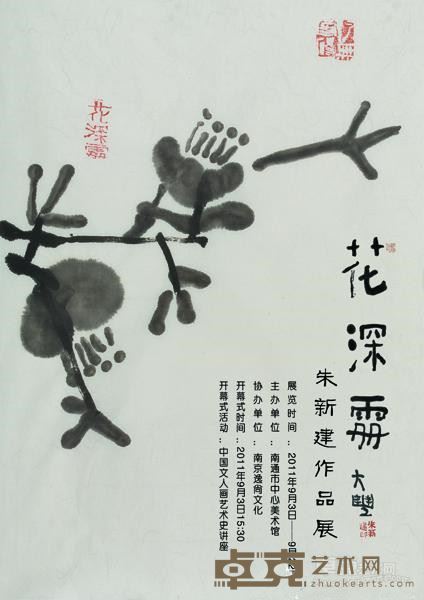 花深雾
大豐
朱新建作品展
展览时间：2011年9月3日——9月22
主办单位：南通市中心美术馆
协办单位：南京逸尚文化
开幕式时间：2011年9月3日15:30
开幕式活动：中国文人画艺术史讲座
花深雾
卓克艺术网
zhuokearts.com